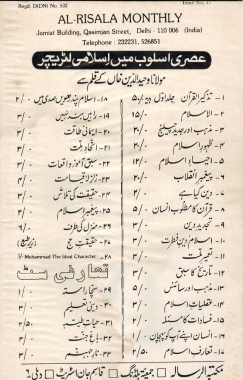 Regd. D(DN) No. 532
Issue No. 57
AL-RISALA MONTHLY
Jamiat Building, Qasimjan Street, Delhi - 110 006 (India)
Telephone : 232231, 526851
عصری اسلوب میں اسلامی لٹریچر
مولانا وحید الدین خاں کے قلم سے
۱- تذکیر القرآن جلد اول
۲- الاسلام
۳- مذہب اور جدید چیلنج
۴- ظہور اسلام
۵- احیاء اسلام
۶- پیغمبر انقلاب
۷- دین کیا ہے
۸- قرآن کا مطلوب انسان
۹- تجدید دین
۱۰- اسلام دین فطرت
۱۱- تعمیر ملت
۱۲- تاریخ کا سبق
۱۳- مذہب اور سائنس
۱۴- عقلیات اسلام
۱۵- فسادات کا مسئلہ
۱۶- انسان اپنے آپ کو پہچان
۱۷- تعارف اسلام
۱۸- اسلام پندرھویں صدی میں
۱۹- راہیں بند نہیں
۲۰- ایمانی طاقت
۲۱- اتحاد ملت
۲۲- سبق آموز واقعات
۲۳- زلزلہ قیامت
۲۴- حقیقت کی تلاش
۲۵- پیغمبر اسلام
۲۶- منزل کی طرف
۲۷- حقیقت حج
28- Mohammad The Ideal Character
تعارفی سٹ
۲۹- سچا راستہ
۳۰- دینی تعلیم
۳۱- حیات طیبہ
۳۲- باغ جنت
۳۳- نار جہنم
مکتبہ الرسالہ جمعیۃ بلڈنگ قاسم جان اسٹریٹ دہلی ۶